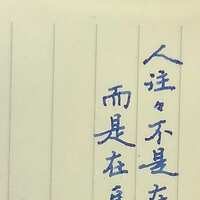 人往々不是在
而是在